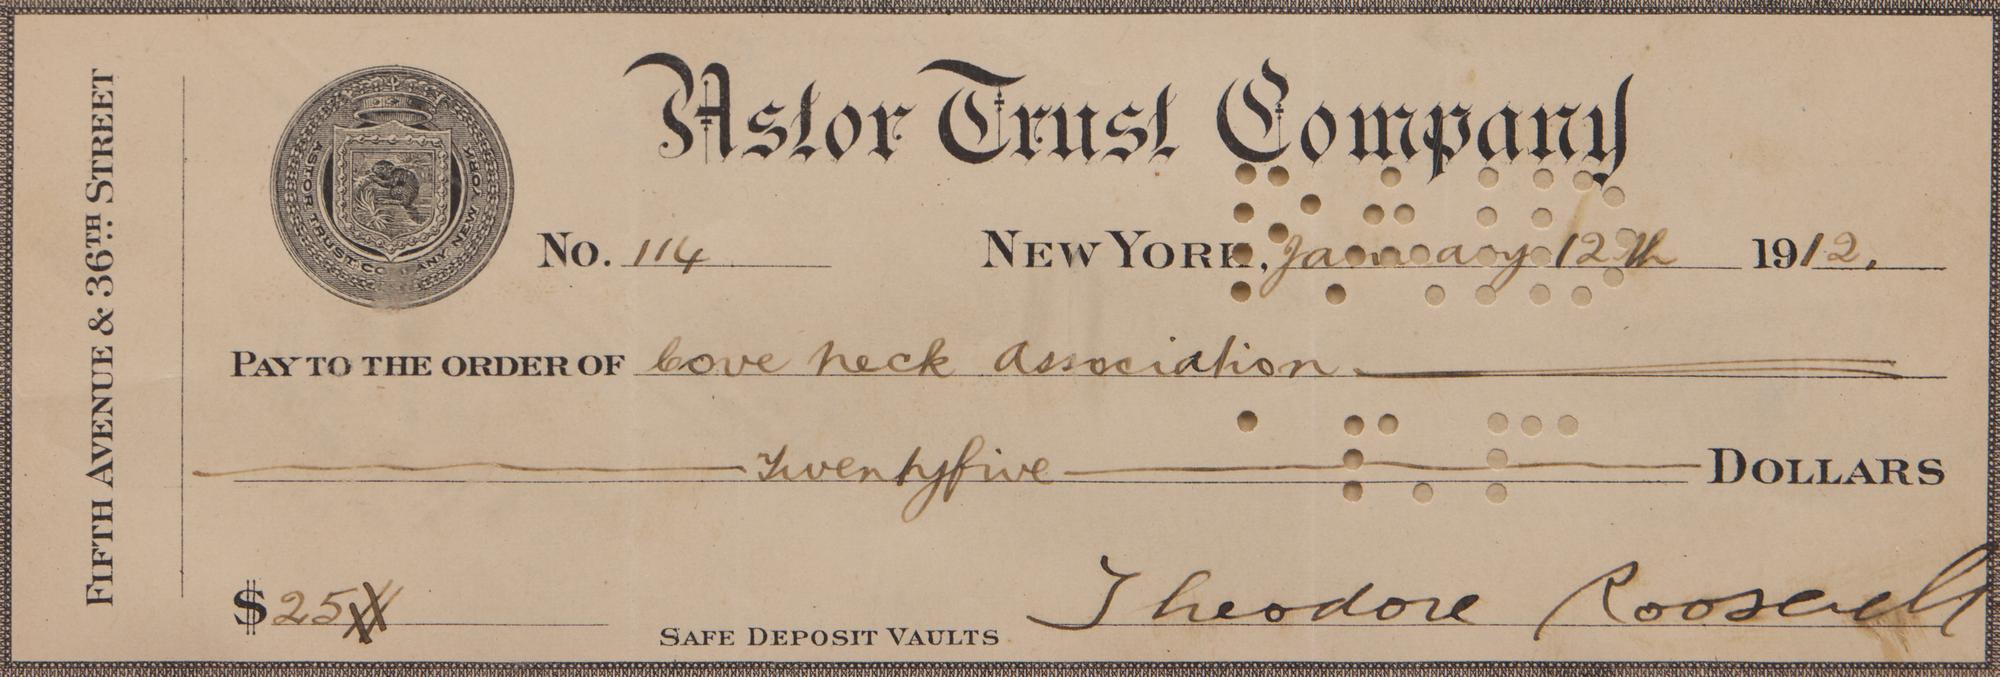 Astor Trust Company
FIFTH AVENUE & 36TH STREET
ASTOR TRUST COMPANY NEW YORK
No. 114 NEW YORK, January 12th 1912.
PAY TO THE ORDER OF Cove Neck Association
Twentyfive DOLLARS
$25
SAFE DEPOSIT VAULTS
Theodore Roosevelt